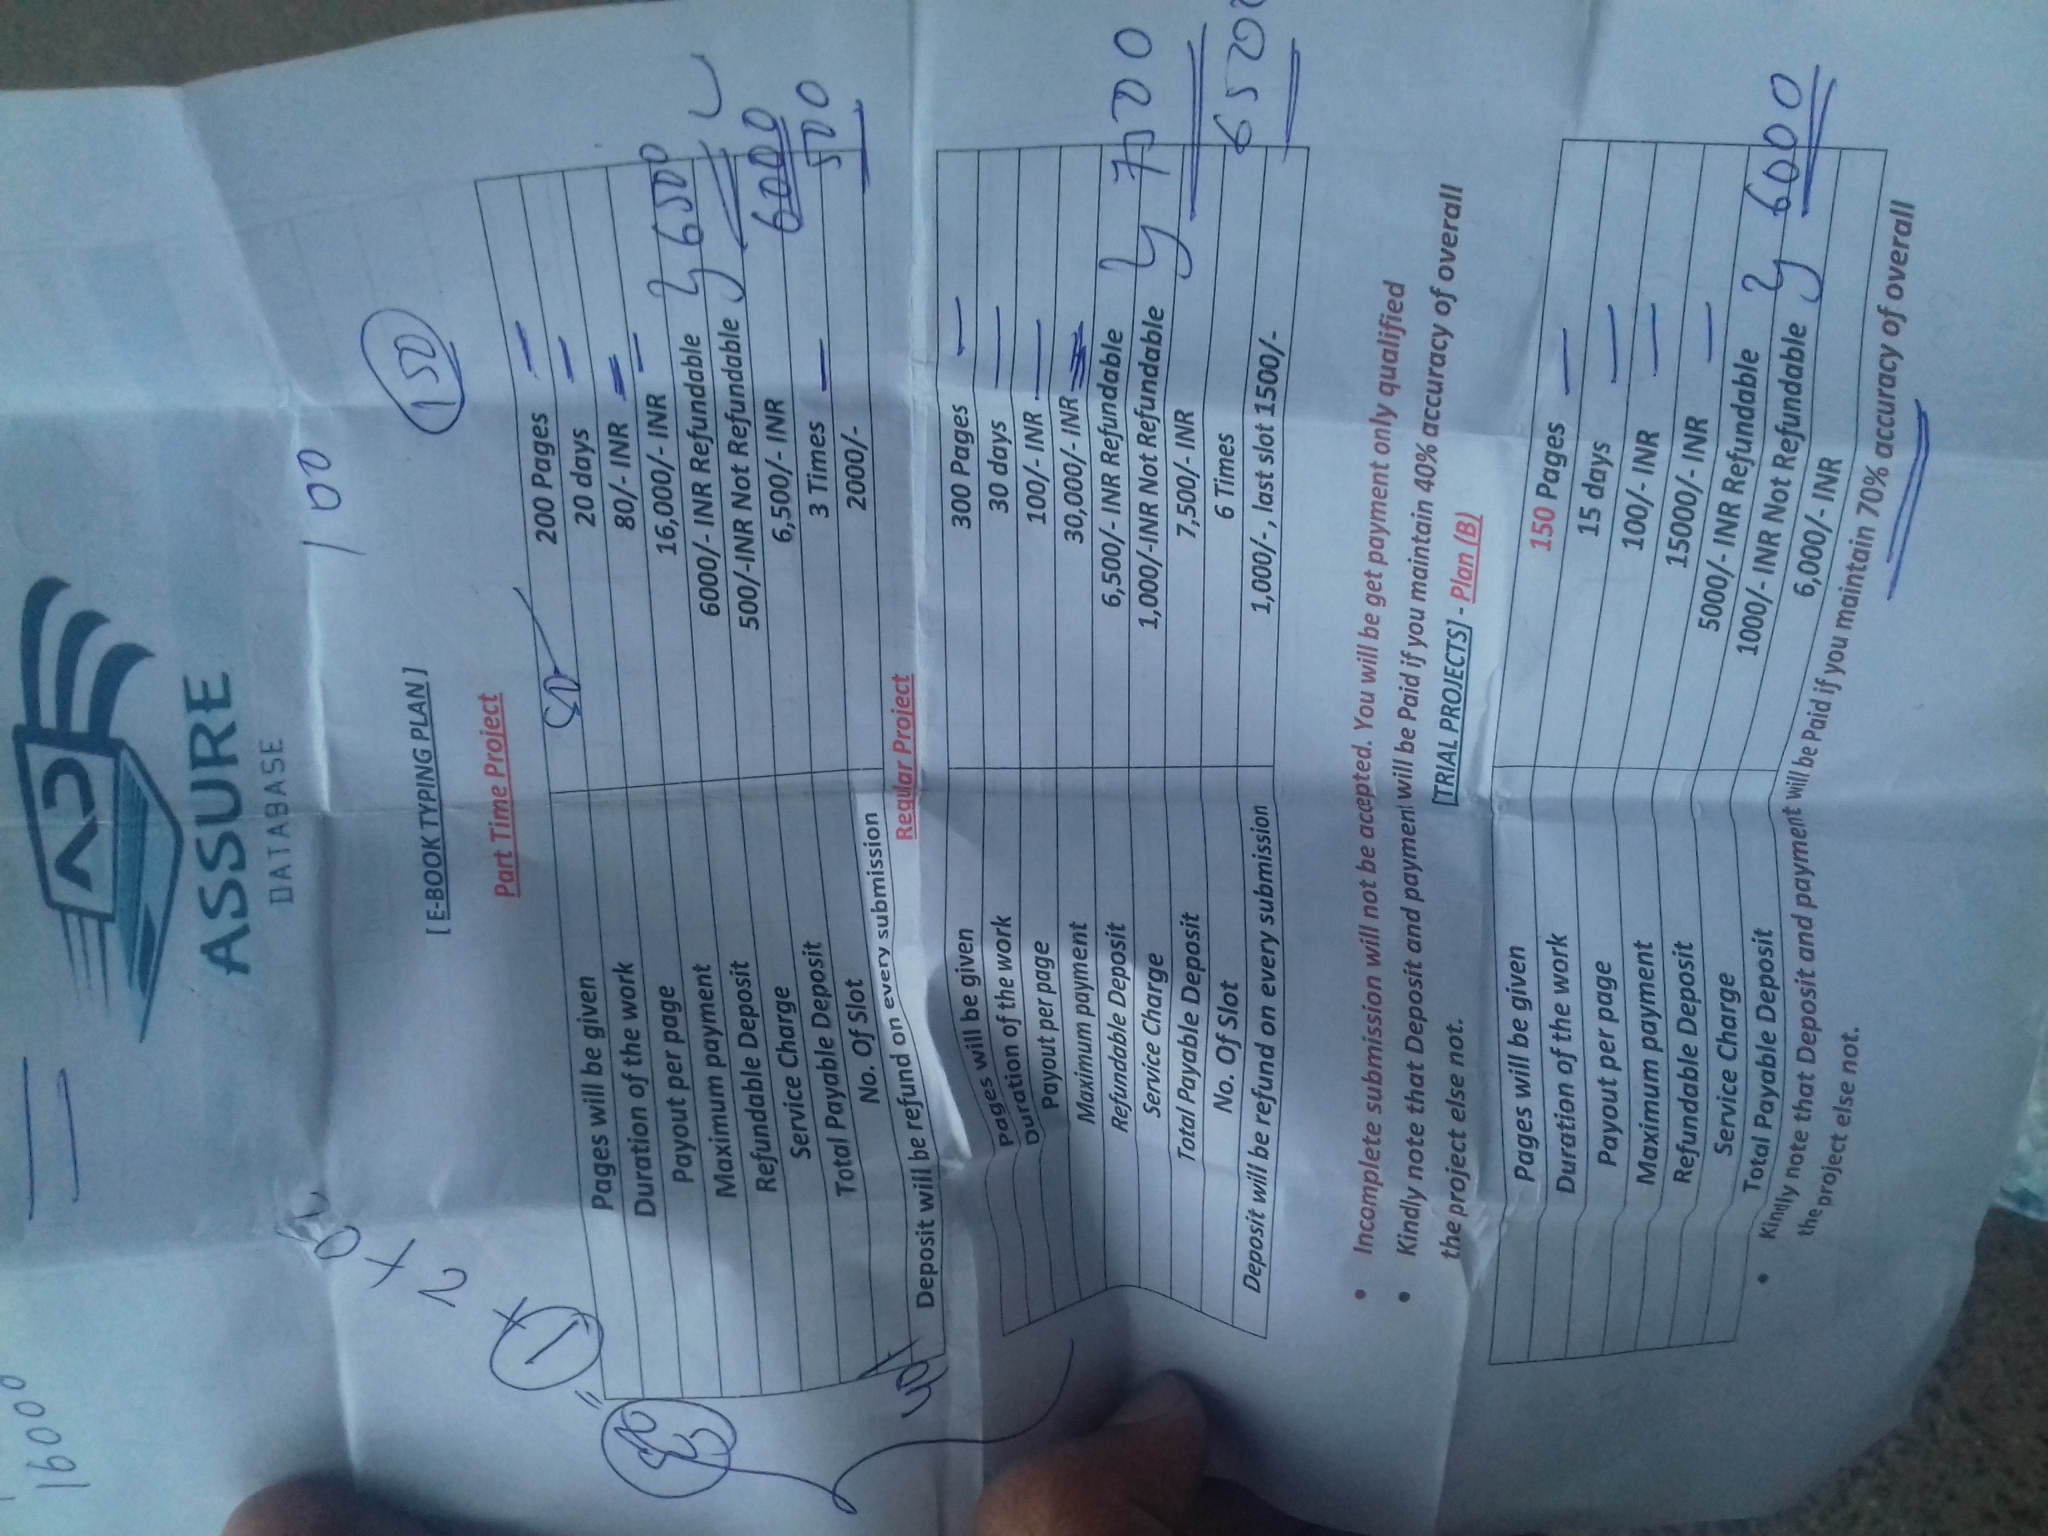 16000
ASSURE
DATABASE
100
150
[ E-BOOK TYPING PLAN ]
Part Time Project
Pages will be given 200 Pages
Duration of the work 20 days
Payout per page 80/- INR
Maximum payment 16,000/- INR
Refundable Deposit 6000/- INR Refundable 6500
Service Charge 500/-INR Not Refundable
Total Payable Deposit 6,500/- INR 6000
No. Of Slot 3 Times 500
Deposit will be refund on every submission 2000/-
Regular Project
Pages will be given 300 Pages
Duration of the work 30 days
Payout per page 100/- INR
Maximum payment 30,000/- INR
Refundable Deposit 6,500/- INR Refundable 7500
Service Charge 1,000/-INR Not Refundable
Total Payable Deposit 7,500/- INR
No. Of Slot 6 Times 6500
Deposit will be refund on every submission 1,000/-, last slot 1500/-
• Incomplete submission will not be accepted. You will be get payment only qualified
• Kindly note that Deposit and payment will be Paid if you maintain 40% accuracy of overall
the project else not.
[TRIAL PROJECTS] - Plan (B)
Pages will be given 150 Pages
Duration of the work 15 days
Payout per page 100/- INR
Maximum payment 15000/- INR
Refundable Deposit 5000/- INR Refundable 6000
Service Charge 1000/- INR Not Refundable
Total Payable Deposit 6,000/- INR
• Kindly note that Deposit and payment will be Paid if you maintain 70% accuracy of overall
the project else not.